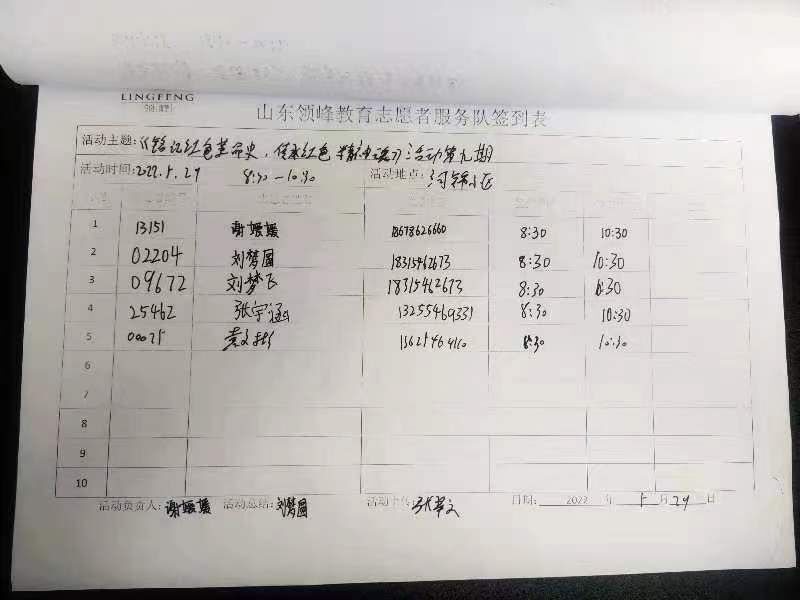 LINGFENG
领峰
山东领峰教育志愿者服务队签到表
活动主题:《铭记红色革命史,传承红色精神》活动第九期
活动时间:2022.5.29 8:30-10:30 活动地点:河锦小区
1 13151 谢媛媛 18678626660 8:30 10:30
2 02204 刘梦圆 18315462673 8:30 10:30
3 09672 刘梦飞 18315462673 8:30 10:30
4 25462 张宇涵 13255469331 8:30 10:30
5 00025 8:30 10:30
6
7
8
9
10
活动负责人:谢媛媛 活动总结:刘梦圆 活动上传: 日期: 2022 年 5 月 29 日